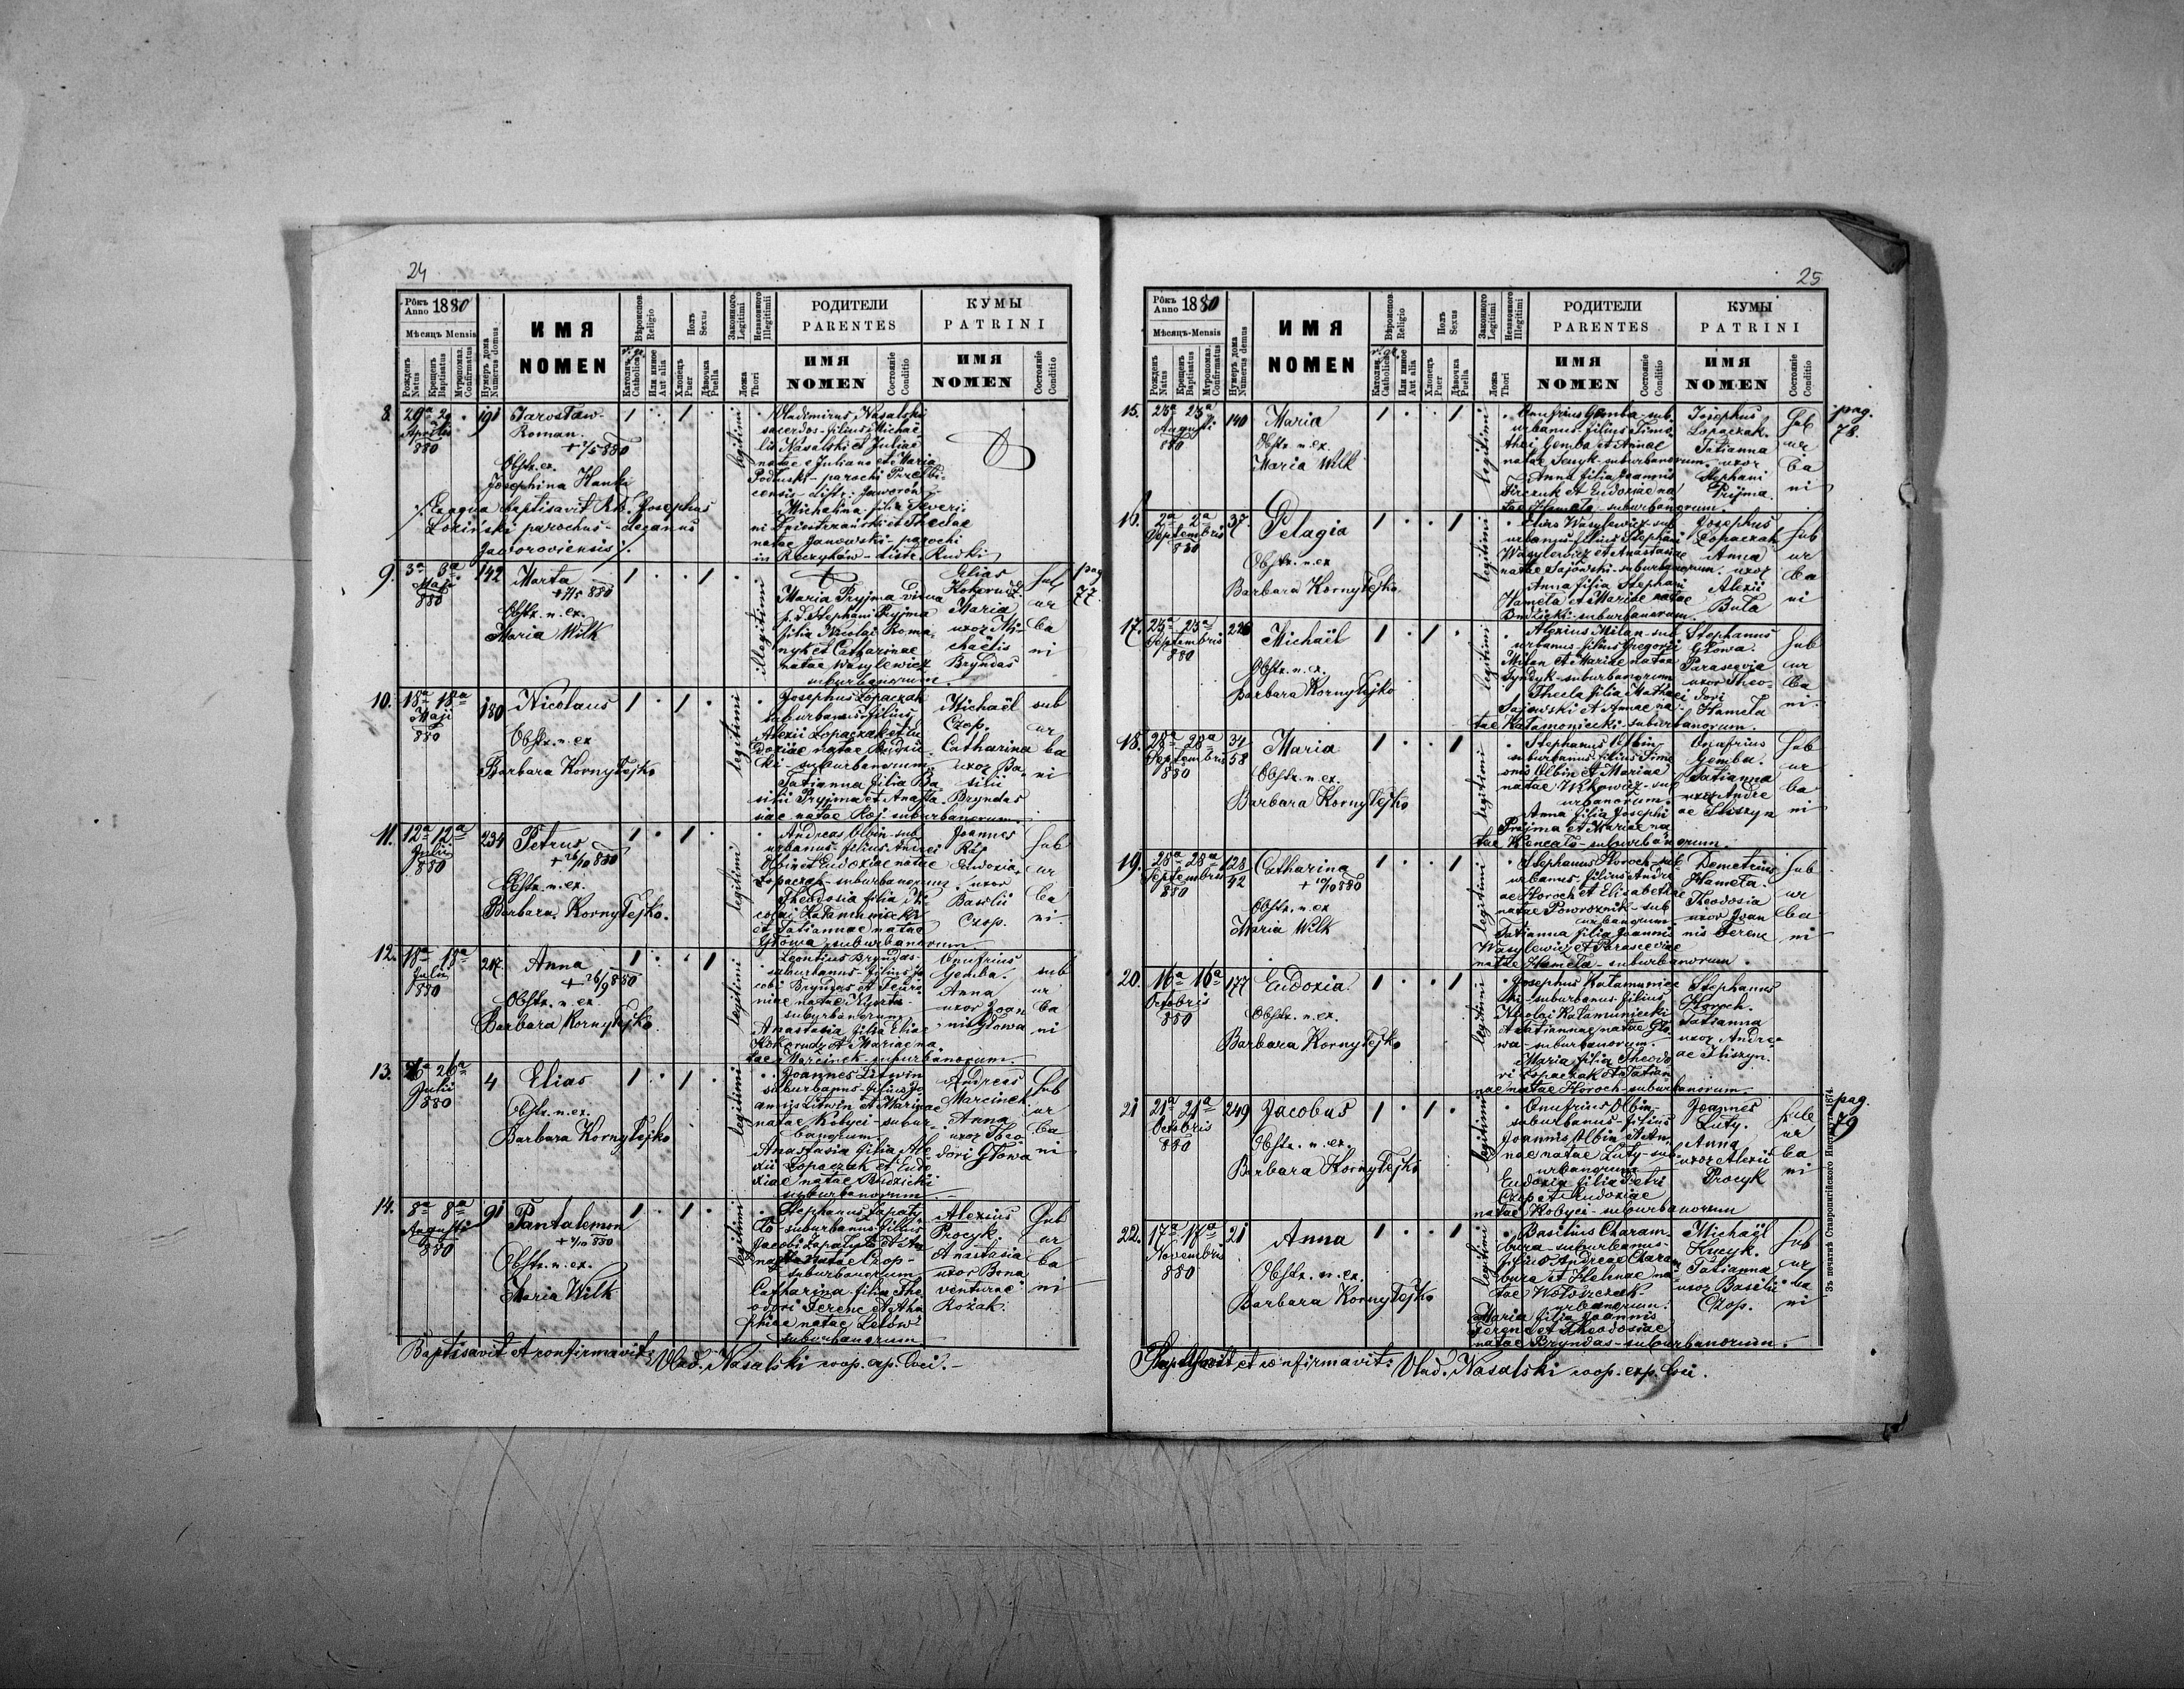 24
Рôкъ Anno 1880
Мѣсяцъ Mensis
Рожденъ Natus
Крещенъ Baptisatus
Мvропомаз. Confirmatus
Нумеръ дома Numerus domus
ИМЯ
NOMEN
Вѣроиспов. Religio
Католич. Catholica
Или иное Aut alia
Полъ Sexus
Хлопецъ Puer
Дѣвочка Puella
Законного Legitimi
Незаконного Illegitimi
Ложа Thori
РОДИТЕЛИ
PARENTES
ИМЯ
NOMEN
Состояніе Conditio
КУМЫ
PATRINI
ИМЯ
NOMEN
Состояніе Conditio
8. 29a 29 Aprilis 880
191
Jarosław
Roman
Obstr. ex.
Josephina Hanki
/: Ex aqua baptisavit Rd. Josephus
Łoziński parochus - decanus
Jaworoviensis :/.
legitimi
Vladimirus Nasalski
sacerdos - filius Michaë
lis Nasalski et Juliae
natae e Juliano et Maria
parochi
Michalina filia Xaveri
et Theclae
natae Janowski - parochi
in Roczyków - distr. Rudki
9. 3a 3a Maji 880
142
Marta
+ 7/5 880
Obstr. n. ex.
Maria Wilk
illegitimi
Maria Pryjma vidua
p. d. Stephani Pryjma
filia Nicolai Roma
nyk et Catharinae
natae Wasylewicz
suburbanorum.
Elias
Kokorudz
Maria
uxor Mi-
chaëlis
Bryndas
sub
ur
ba
ni
pag
77.
10. 18a 18a Maji 880
180
Nicolaus
Obstr. n. ex
Barbara Kornyłejko
legitimi
Josephus Łopaczak
suburbanus filius
Alexii Łopaczak et Eu
doxiae natae Budzic
ki - suburbanorum.
Tatianna filia Ba
silii Pryjma et Anasta
siae natae Koj. suburbanorum.
Michaël
Czop.
Catharina
uxor Ba
silii
Bryndas
sub
ur
ba
ni
11. 12a 12a Julii 880
234
Petrus
+ 26/10 880
Obstr. n. ex.
Barbara Kornyłejko.
legitimi
Andreas Olbin - sub
urbanus - filius Andrei
Olbin et Eudoxiae natae
Łopaczak - suburbanorum.
Theodosia filia Ni
colai Kałamuniecki
et Tatiannae natae
Głowa suburbanorum
Joannes
Eudoxia
uxor
Basilii
Czop.
sub
ur
ba
ni
12. 18a 18a Julii 880
217.
Anna
+ 26/9 880
Obstr. n. ex.
Barbara Kornyłejko
legitimi
Leontius Bryndas
suburbanus - filius Ja
cobi Bryndas et Feuro
niae natae
suburbanorum
Anastasia filia Eliae
Kokorudz et Mariae na
tae Marcinek - suburbanorum.
Onufrius
Gemba.
Anna
uxor Joan
nis Głowa
sub
ur
ba
ni
13. 26a 26a Julii 880
4
Elias
Obstr. n. ex.
Barbara Kornyłejko
legitimi
Joannes Litwin
suburbanus - filius Jo
annis Litwin et Mariae
natae Kobyci - subur-
banorum.
Anastasia filia Ale
xii Łopaczak et Eudo
xiae natae Budzicki
suburbanorum
Andreas
Marcinek
Anna
uxor Theo
dori Głowa
sub
ur
ba
ni
14. 8a 8a Augusti 880
91
Pantalemon
+ 4/10 880
Obstr. n. ex.
Maria Wilk
legitimi
Stephanus Łapaty
ło - suburbanus - filius
Jacobi Łapatyło et An
nae natae Czop -
suburbanorum
Catharina filia The
odori Ferenc et Aga
phiae natae Lelów
suburbanorum
Alexius
Procyk.
Anastasia
uxor Bona
venturae
Kożak.
sub
ur
ba
ni
Baptisavit et confirmavit: Vlad. Nasalski coop. exp. loci. -
25
Рôкъ Anno 1880
Мѣсяцъ-Mensis
Рожденъ Natus
Крещенъ Baptisatus
Мvропомаз. Confirmatus
Нумеръ дома Numerus domus
ИМЯ
NOMEN
Вѣроиспов. Religio
Католич. Catholica
Или иное Aut alia
Полъ Sexus
Хлопецъ Puer
Дѣвочка Puella
Законного Legitimi
Незаконного Illegitimi
Ложа Thori
РОДИТЕЛИ
PARENTES
ИМЯ
NOMEN
Состояніе Conditio
КУМЫ
PATRINI
ИМЯ
NOMEN
Состояніе Conditio
15. 25a 25a Augusti 880
140
Maria
Obstr. n. ex.
Maria Wilk
legitimi
Onufrius Gemba - sub
urbanus filius Timo
thei Gemba et Annae
natae Senyk - suburbanorum.
Anna filia Joannis
et Eudoxiae na
tae Hameła - suburbanorum.
Josephus
Łopaczak.
Tatianna
uxor
Stephani
Pryjma.
sub
ur
ba
ni
pag.
78.
16. 2a 2a Septembris 880
37.
Pelagia
Obstr. n. ex
Barbara Kornyłejko
legitimi
Elias Wasylewicz - sub
urbanus - filius Stephani
Wasylewicz et Anastasiae
natae Sajowski - suburbanorum.
Anna filia Stephani
Hameła et Mariae natae
Budzicki - suburbanorum.
Josephus
Łopaczak
Anna
uxor
Alexii
Buła
sub
ur
ba
ni
17. 25a 25a Septembris 880
226
Michaël
Obstr. n. ex.
Barbara Kornyłejko
legitimi
Alexius Milan - sub
urbanus - filius Gregorii
Milan et Mariae natae
Tyndyk - suburbanorum
Thecla filia Mathaei
Sajowski et Annae na
tae Kałamoniecki - suburbanorum.
Stephanus
Głowa.
Parascevia
uxor Theo-
dori
Hameła
sub
ur
ba
ni.
18. 28a 28a Septembris 880
34
58
Maria
Obstr. n. ex.
Barbara Kornyłejko
legitimi
Stephanus Olbin
suburbanus - filius Sime
onis Olbin et Mariae
natae - sub
urbanorum.
Anna filia Josephi
Pryjma et Mariae na
tae - suburbanorum.
Onufrius
Gemba.
Tatianna
uxor Andre
ae Hiszyn
sub
ur
ba
ni
19. 28a 28a Septembris 880
128
42
Catharina
+ 10/10 880
Obstr. n. ex
Maria Wilk
legitimi
Stephanus Horoch - sub
urbanus - filius Andre
ae Horoch et Elisabethae
natae Powroznik - sub
urbanorum.
Tatianna filia Joannis
Wasylewicz et Parasceviae
natae Hameła - suburbanorum.
Demetrius
Hameła.
Theodosia
uxor Joan
nis Ferenc
sub
ur
ba
ni
20. 16a 16a Octobris 880
177
Eudoxia
Obstr. n. ex.
Barbara Kornyłejko
legitimi
Josephus Kałamuniec
ki - suburbanus - filius
Nicolai Kałamuniecki
et Tatiannae natae Gło
wa - suburbanorum.
Maria filia Theodo
ri Łopaczak et Tatian
nae natae Horoch - suburbanorum.
Stephanus
Horoch.
Tatianna
uxor Andre-
ae Hiszyn.
21 21a 21a Octobris 880
249
Jacobus
Obstr. n. ex.
Barbara Kornyłejko
legitimi
Onufrius Olbin
suburbanus - filius
Joannis Olbin et An
nae natae Luty - sub
urbanorum
Eudoxia filia Petri
Czop et Eudoxiae
natae Kobyci - suburbanorum
Joannes
Luty.
Anna
uxor Alexii
Procyk
sub
ur
ba
ni
pag.
79
22. 17a 17a Novembris 880
21
Anna
Obstr. n. ex.
Barbara Kornyłejko
legitimi
Basilius Charam
bura - suburbanus -
filius Andreae Charam
bura et Helenae na
tae Wołoszczak
urbanorum.
Maria filia Joannis
Ferenc et Theodosiae
natae Bryndas - suburbanorum.
Michaël
Kucyk.
Tatianna
uxor Basilii
Czop.
sub
ur
ba
ni
Baptisavit et confirmavit: Vlad. Nasalski coop. exp. loci.
Зъ печатнѣ Ставропигійского Института 1874.